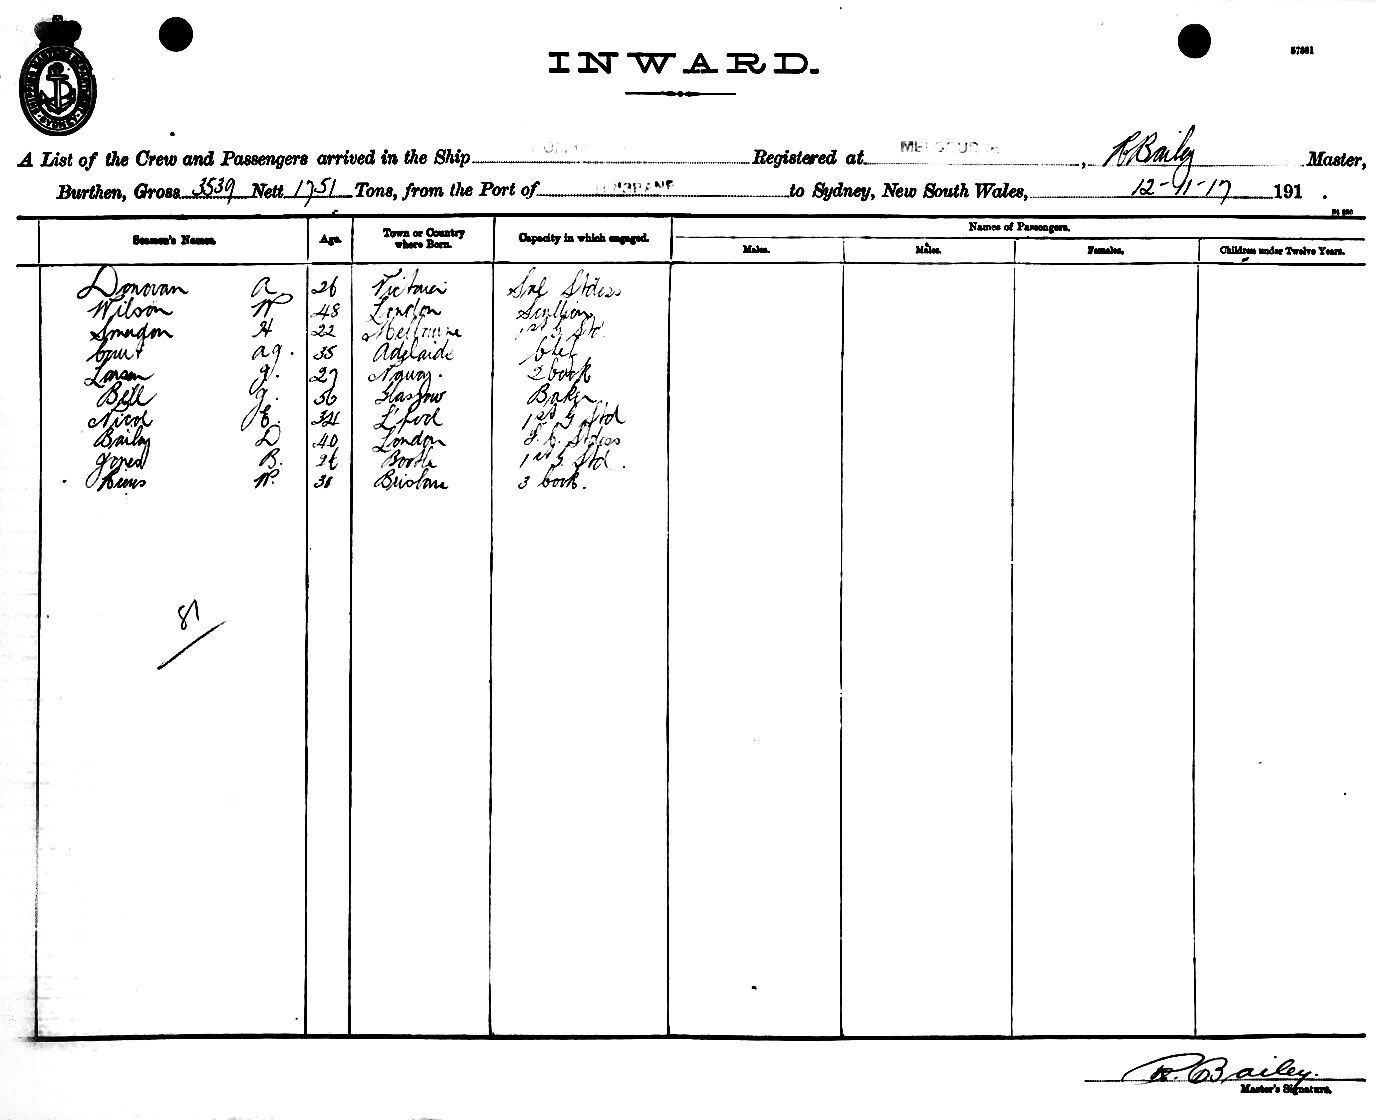 57981
INWARD.
SYDNEY
A List of the Crew and Passengers arrived in the Ship Registered at MELBOURNE, R Bailey Master,
Burthen, Gross 3539 Nett 1751 Tons, from the Port of BRISBANE to Sydney, New South Wales, 12-11-17 191 .
Names of Passengers.
Seamen's Names. Age. Town or Country where Born. Capacity in which engaged. Males. Males. Females. Children under Twelve Years.
Donovan A 26 Stdess
Wilson W 48 London Scullion
H 22 Melbourne 1st G Std.
A.G. 35 Adelaide
Larsen J. 27 2 Cook
Bell J. 56 Glasgow Baker
Nicol E. L'pool 1st G Std
Bailey D 40 London Stdess
Jones B. Bootle 1st G Std.
W. Brisbane 3 Cook.
81
R. Bailey.
Master's Signature.